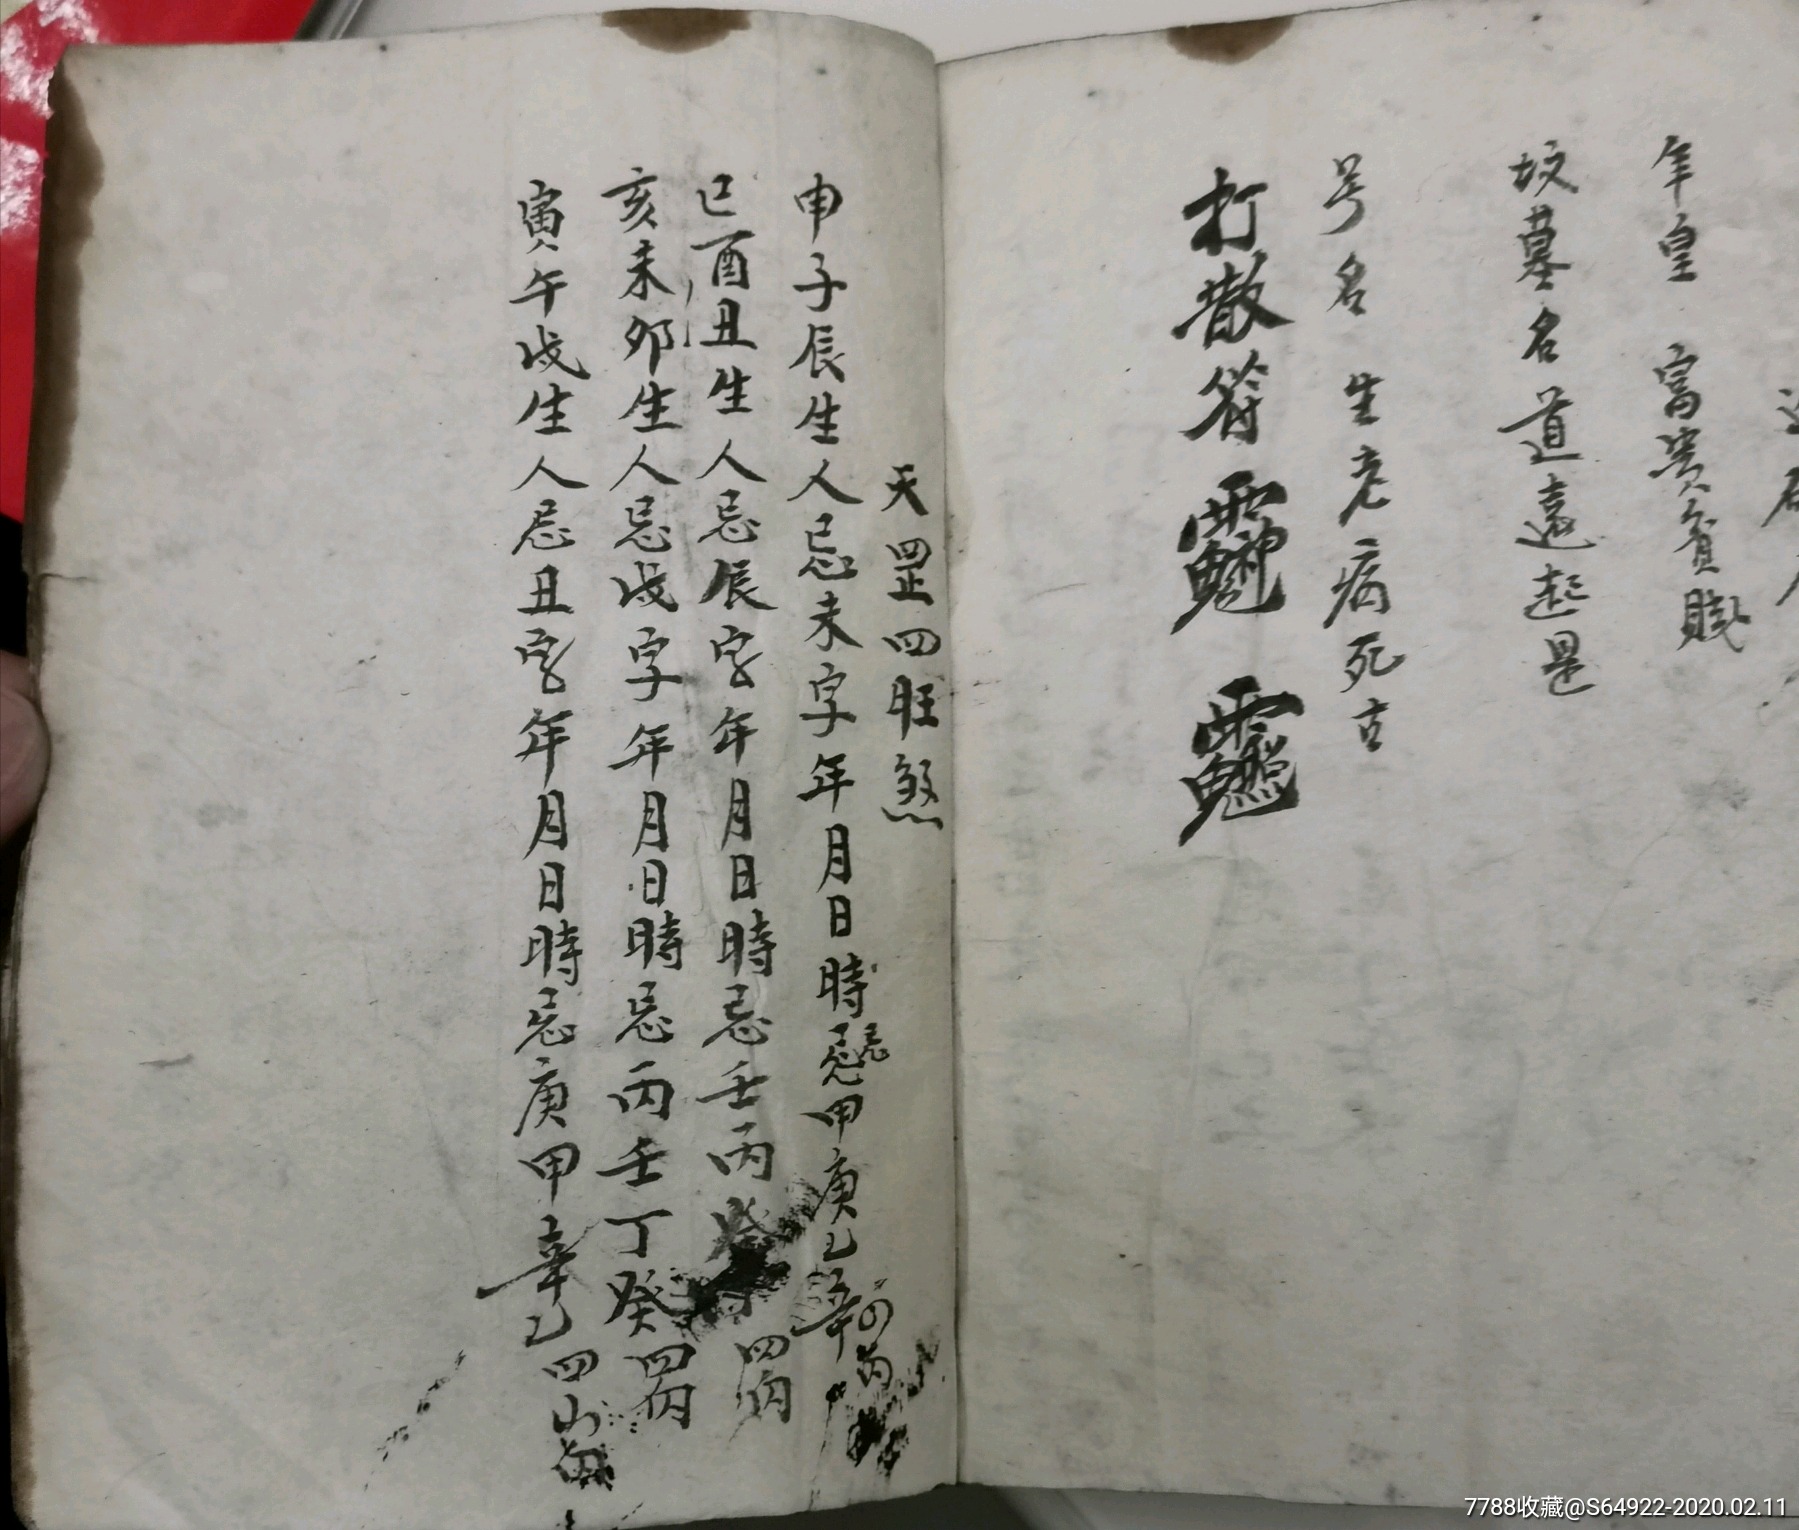 年皇 富貴貧賤
坟墓名道遠起是
号名 生老病死古
打散符
天罡四旺煞
申子辰生人忌未字年月日時忌甲庚乙辛
巳酉丑生人忌辰字年月日時忌壬丙癸 四
亥未卯生人忌戌字年月日時忌丙壬丁癸四
寅午戌生人忌丑字年月日時忌庚甲辛乙四山
7788收藏@S64922-2020.02.11